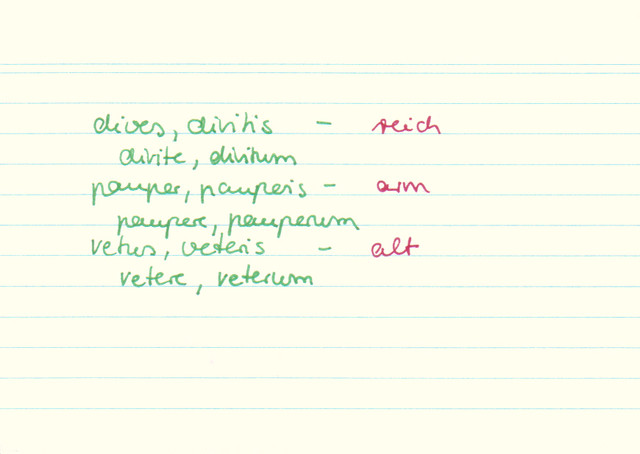 dives, divitis - reich
divite, divitum
pauper, pauperis - arm
paupere, pauperum
vetus, veteris - alt
vetere, veterum